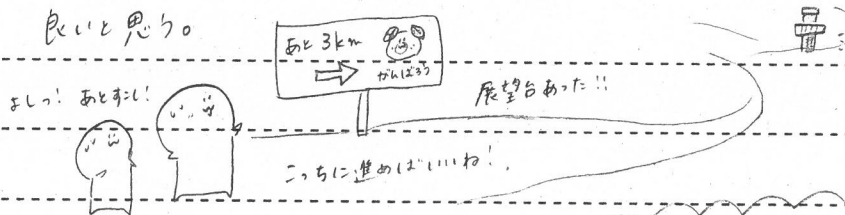 良いと思う。
あと3km
がんばろう
よしっ!あとすこし!
展望台あった!!
こっちに進めばいいね!